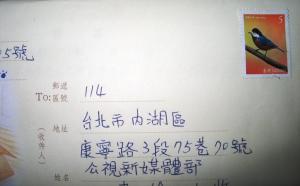 5
5號
郵遞
To:區號
114
地址
台北市內湖區
(收件人)
康寧路3段75巷70號
公視新媒體部
姓名